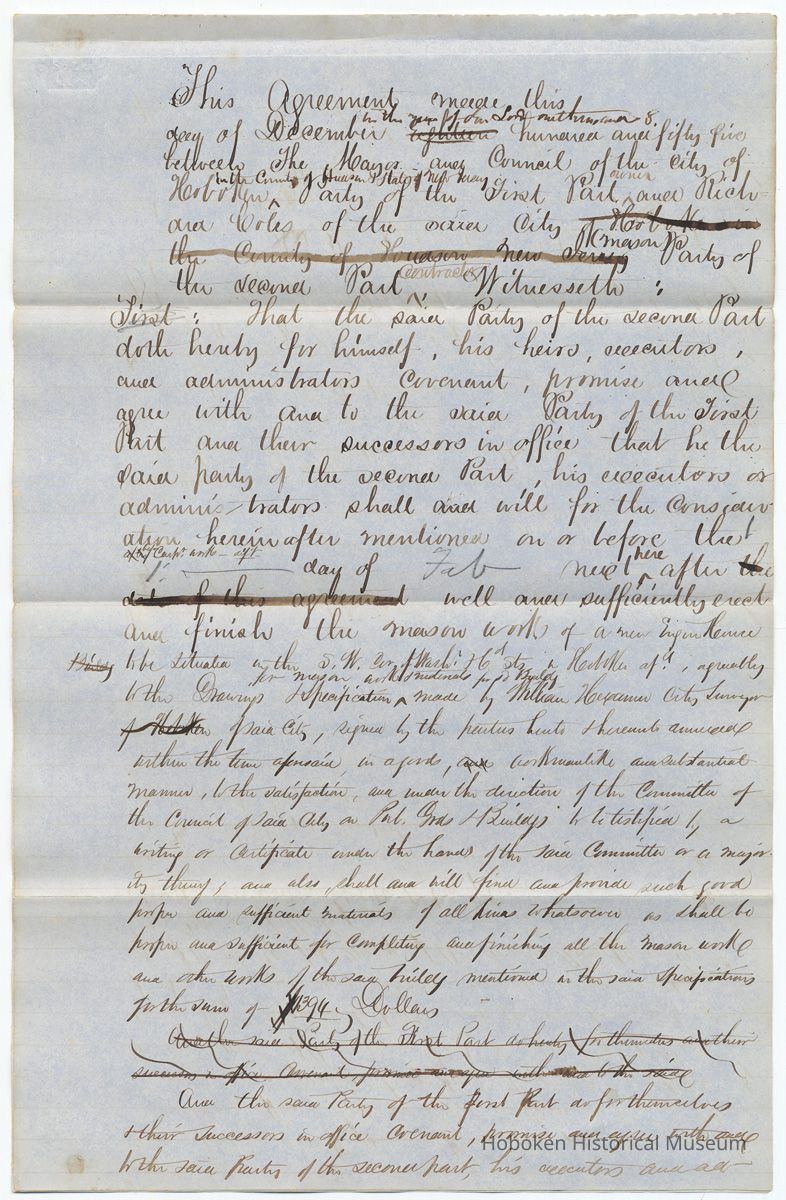 This Agreement made this
in the year of our Lord one thousand 8.
day of December eighteen hundred and fifty five
between The Mayor and Council of the City of
in the County of Hudson & State of New Jersey owner
Hoboken Party of the First Part and Rich-
ard Coles of the said City of Hoboken in
the County of Hudson New Jersey (mason) Party of
contractor
the second Part Witnesseth :
First : That the said Party of the second Part
doth hereby for himself, his heirs, executors,
and administrators covenant, promise and
agree with and to the said Party of the First
Part and their successors in office that he the
said party of the second Part, his executors or
administrators shall and will for the consider-
ation herein after mentioned on or before the
1 day of Feb next here after the
date of this agreement well and sufficiently erect
and finish the mason work of a new Engine House
to be situated on the S. W. Cor. of Wash. & 6th Sts. in Hoboken afsd, agreeably
for mason work & materials for sd Buildg
to the Drawings & Specification made by William Hexamer City Surveyor
of Hoboken of said City, signed by the parties hereto & hereunto annexed
within the time aforesaid, in a good, and workmanlike and substantial
manner, to the satisfaction, and under the direction of the Committee of
the Council of said City on Pub. Grds & Buildgs to be testified by a
writing or certificate under the hands of the said Committee or a major-
ity thereof; and also, shall and will find and provide such good
proper and sufficient materials of all kinds whatsoever as shall be
proper and sufficient for completing and finishing all the mason work
and other works of the said buildg mentioned in the said specifications
for the sum of $1394 Dollars
And the said Party of the First Part do hereby for themselves and their
successors in office covenant promise and agree with and to the said
And the said Party of the first Part do for themselves
& their successors in office covenant, promise and agree with and
to the said Party of the second part, his executors and ad-
Hoboken Historical Museum